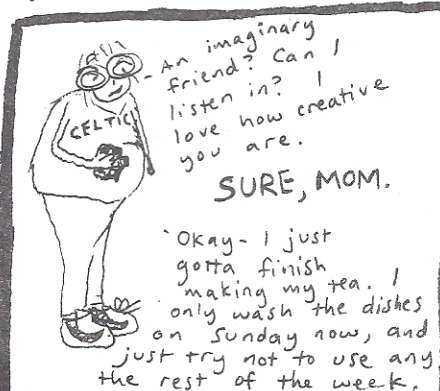 An imaginary
friend? Can I
listen in? I
love how creative
you are.
CELTIC
SURE, MOM.
Okay- I just
gotta finish
making my tea. I
only wash the dishes
on Sunday now, and
just try not to use any
the rest of the week.